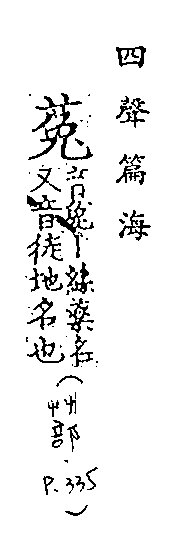 四聲篇海
菟
音兔丨絲藥名
又音徒地名也
(艸部.
P.335)